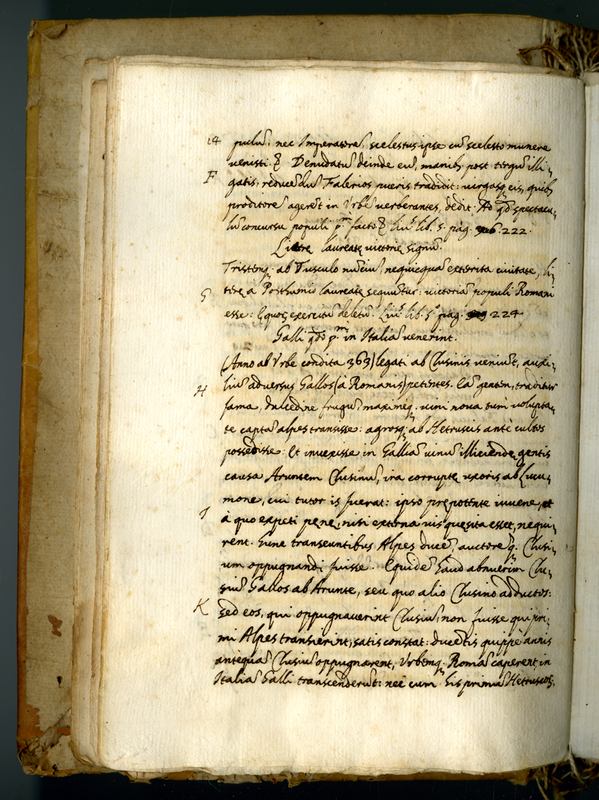 14 pulus, nec Imperatore, scelestus ipse cu scelesto munere
venisti. &c Denudatu deinde eu, manib post tergu illi,
F gatis, reducedu Falerios pueris tradidit: virgasq eis, quib
proditore ageret in Urbe verberantes, dedit. Ad qd spectacu,
lu concursu populi p facto &c liu lib. 5. pag. 222.
Litere laureate victorie signu.
Tristeng. ab Tusculo nuciu, nequicqua exterita civitate, li,
G tere a Posthumio laureate sequutur: victoria populi Romani
esse: Equor exercitu deletu. Liu lib. 5 pag. 224
Galli qdo p in Italia venerint.
(Anno ab Urbe condita 363) legati ab Clusinis veniut, auxi,
H liu adversus Gallos (a Romanis) petentes. Ea gentem, traditur
fama, dulcedine frugu maximeq. vini nova tum volupta,
te capta alpes transisse: agrosq ab Hetruscis ante cultos
possedisse. Et invexisse in Gallia vinu illiciende gentis
causa Aruntem Clusinu, ira corrupte uxoris ab Lucu,
mone, cui tutor is fuerat: ipso prepotente iuvene, et
I a quo expeti pene, nisi externa vis quesita esset, nequi,
rent. hunc transeuntibus Alpes duce, auctoreq. Clusi,
um oppugnandi fuisse. Equide haud abnuerim Clu,
siu Gallos ab Arunte, seu quo alio Clusino adductos:
K sed eos, qui oppugnaverint Clusiu, non fuisse qui pri,
mi Alpes transierint, satis constat: ducetis quippe annis
antequa Clusiu oppugnarent, Urbemq. Roma caperent in
Italia Galli transcenderut: nec cum his primu Hetruscor,